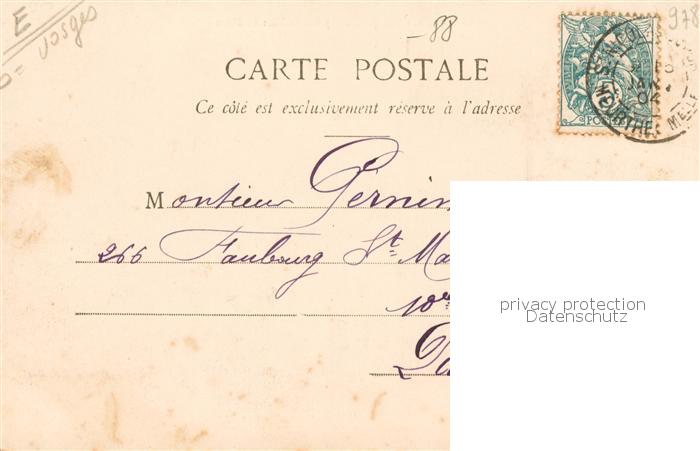 E
Vosges
-88
978
CARTE POSTALE
Ce côté est exclusivement réservé à l'adresse
JANV
04
MEURTHE
Monsieur Pernin
266 Faubourg St Ma
10e
Pa
privacy protection
Datenschutz